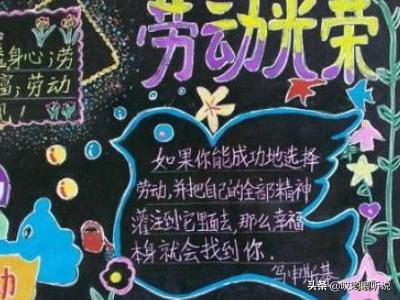 劳动光荣
身心;劳
富,劳动
如果你能成功地选择
劳动,并把自己的全部精神
灌注到它里面去,那么幸福
本身就会找到你.
乌申斯基
头条